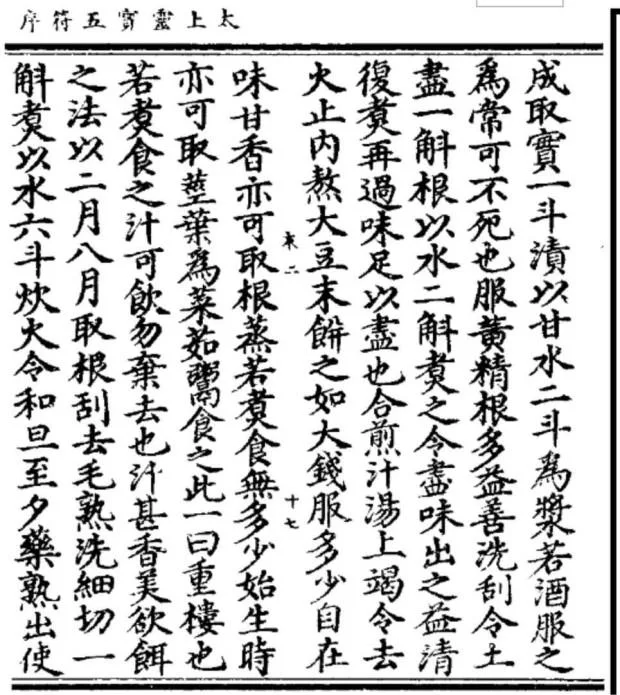 太上靈寳五符序
成取實一斗漬以甘水二斗為漿若酒服之
爲常可不死也服黄精根多益善洗刮令土
盡一斛根以水二斛煑之令盡味出之益清
復煑再過味足以盡也合煎汁湯上竭令去
火止内熬大豆末餅之如大錢服多少自在
味甘香亦可取根蒸若煑食無多少始生時
亦可取莖葉爲菜茹鬻食之此一曰重樓也
若煑食之汁可飲勿棄去也汁甚香美欲餌
之法以二月八月取根刮去毛熟洗細切一
斛煑以水六斗炊火令和旦至夕藥熟出使
二
十七